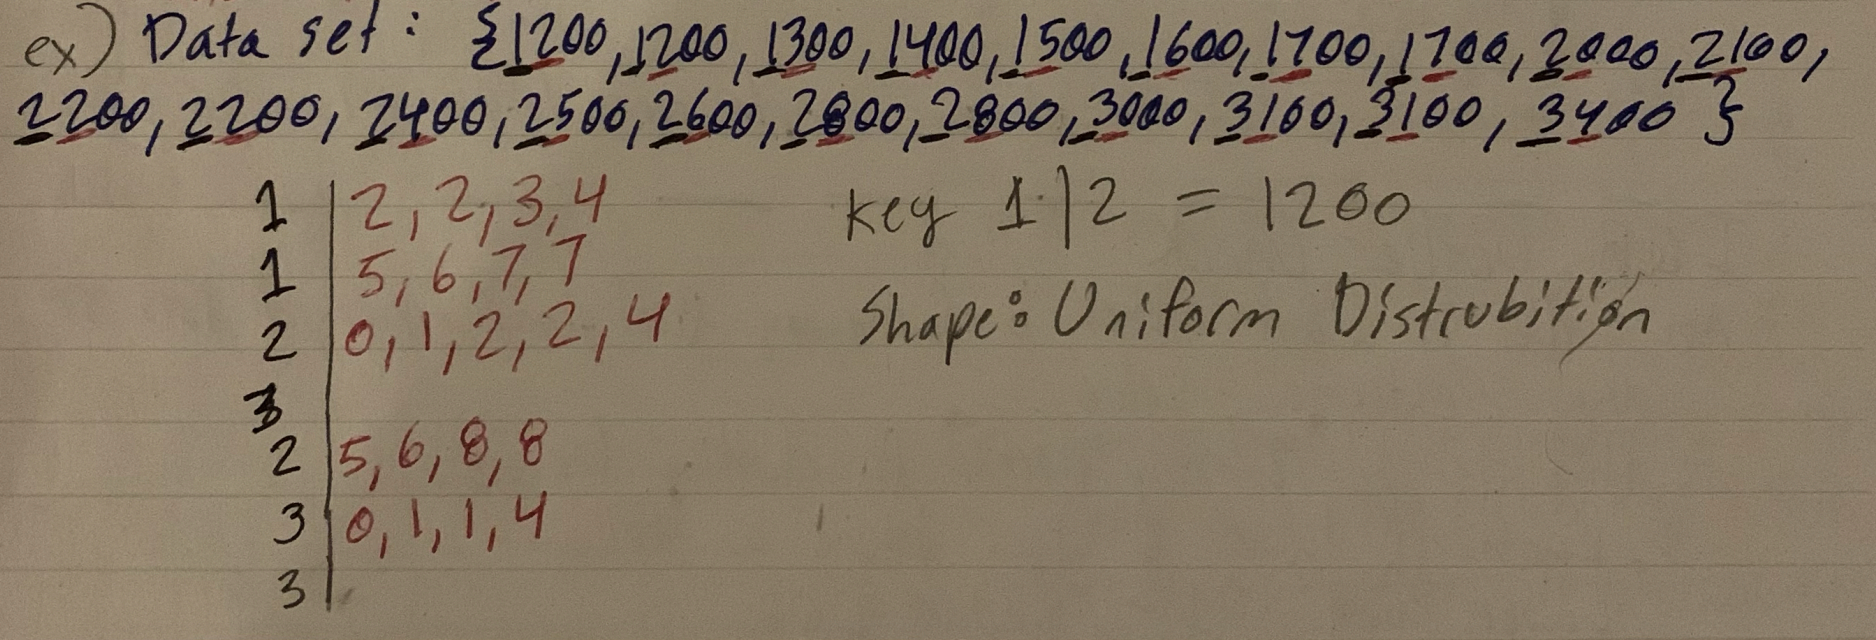 ex) Data set: {1200, 1200, 1300, 1400, 1500, 1600, 1700, 1700, 2000, 2100,
2200, 2200, 2400, 2500, 2600, 2800, 2800, 3000, 3100, 3100, 3400}
1 | 2, 2, 3, 4 key 1|2 = 1200
1 | 5, 6, 7, 7
2 | 0, 1, 2, 2, 4 Shape: Uniform Distrubition
3
2 | 5, 6, 8, 8
3 | 0, 1, 1, 4
3 |